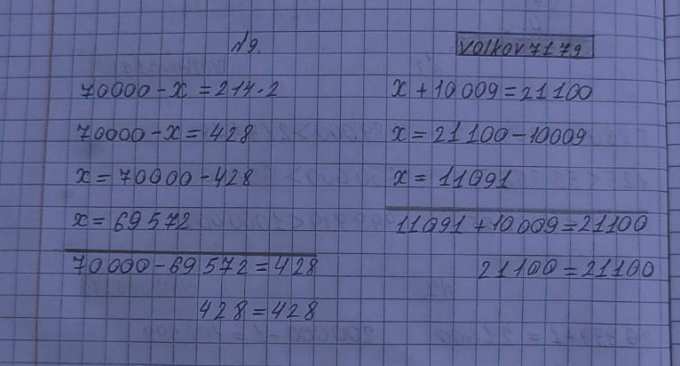 №9.
volkov7179
70000-x=214·2
70000-x=428
x=70000-428
x=69572
70000-69572=428
428=428
x+10009=21100
x=21100-10009
x=11091
11091+10009=21100
21100=21100